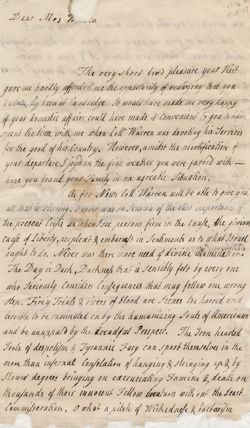 Dear Mrs
The very short lived pleasure your Visit
gave me hardly afforded me the opportunity of realizing that you
It would have made me very happy
if your domestic affairs could have made it convenient to you to have
spent the time with me when Coll. Warren was devoting his Services
for the good of his Country. However, amidst the mortification of
your departure I joyd in the fine weather you were favord with
hope you found your Family in an agreable Situation.
As for News Coll Warren will be able to give you
all that is stirring. I never was so sensible of the vast importance of
the present Crisis as when I see persons firm in the cause, the glorious
cause of Liberty, perplext & embarrast in Sentiments as to what
ought to do. Never was there more need of divine illumination!
The Day is Dark, Darkness that is sensibly felt by every one
who seriously Consider Consequences that may follow one wrong
step. Fiery Trials & rivers of blood are Scenes too horrid and
terrible to be ruminated on by the humanizing Souls of Americans
and be unappald by the dreadful Prospect. The Iron hearted
Tools of despotism & Tyrannic Fury can sport themselves in the
more than infernal Consolation of hanging & stringing up & by
slower degrees bringing on excruciating Famine & death on
thousands of their innocent Fellow Creatures without the least
Commiseration. O what a pitch of Wickedness & barbarism